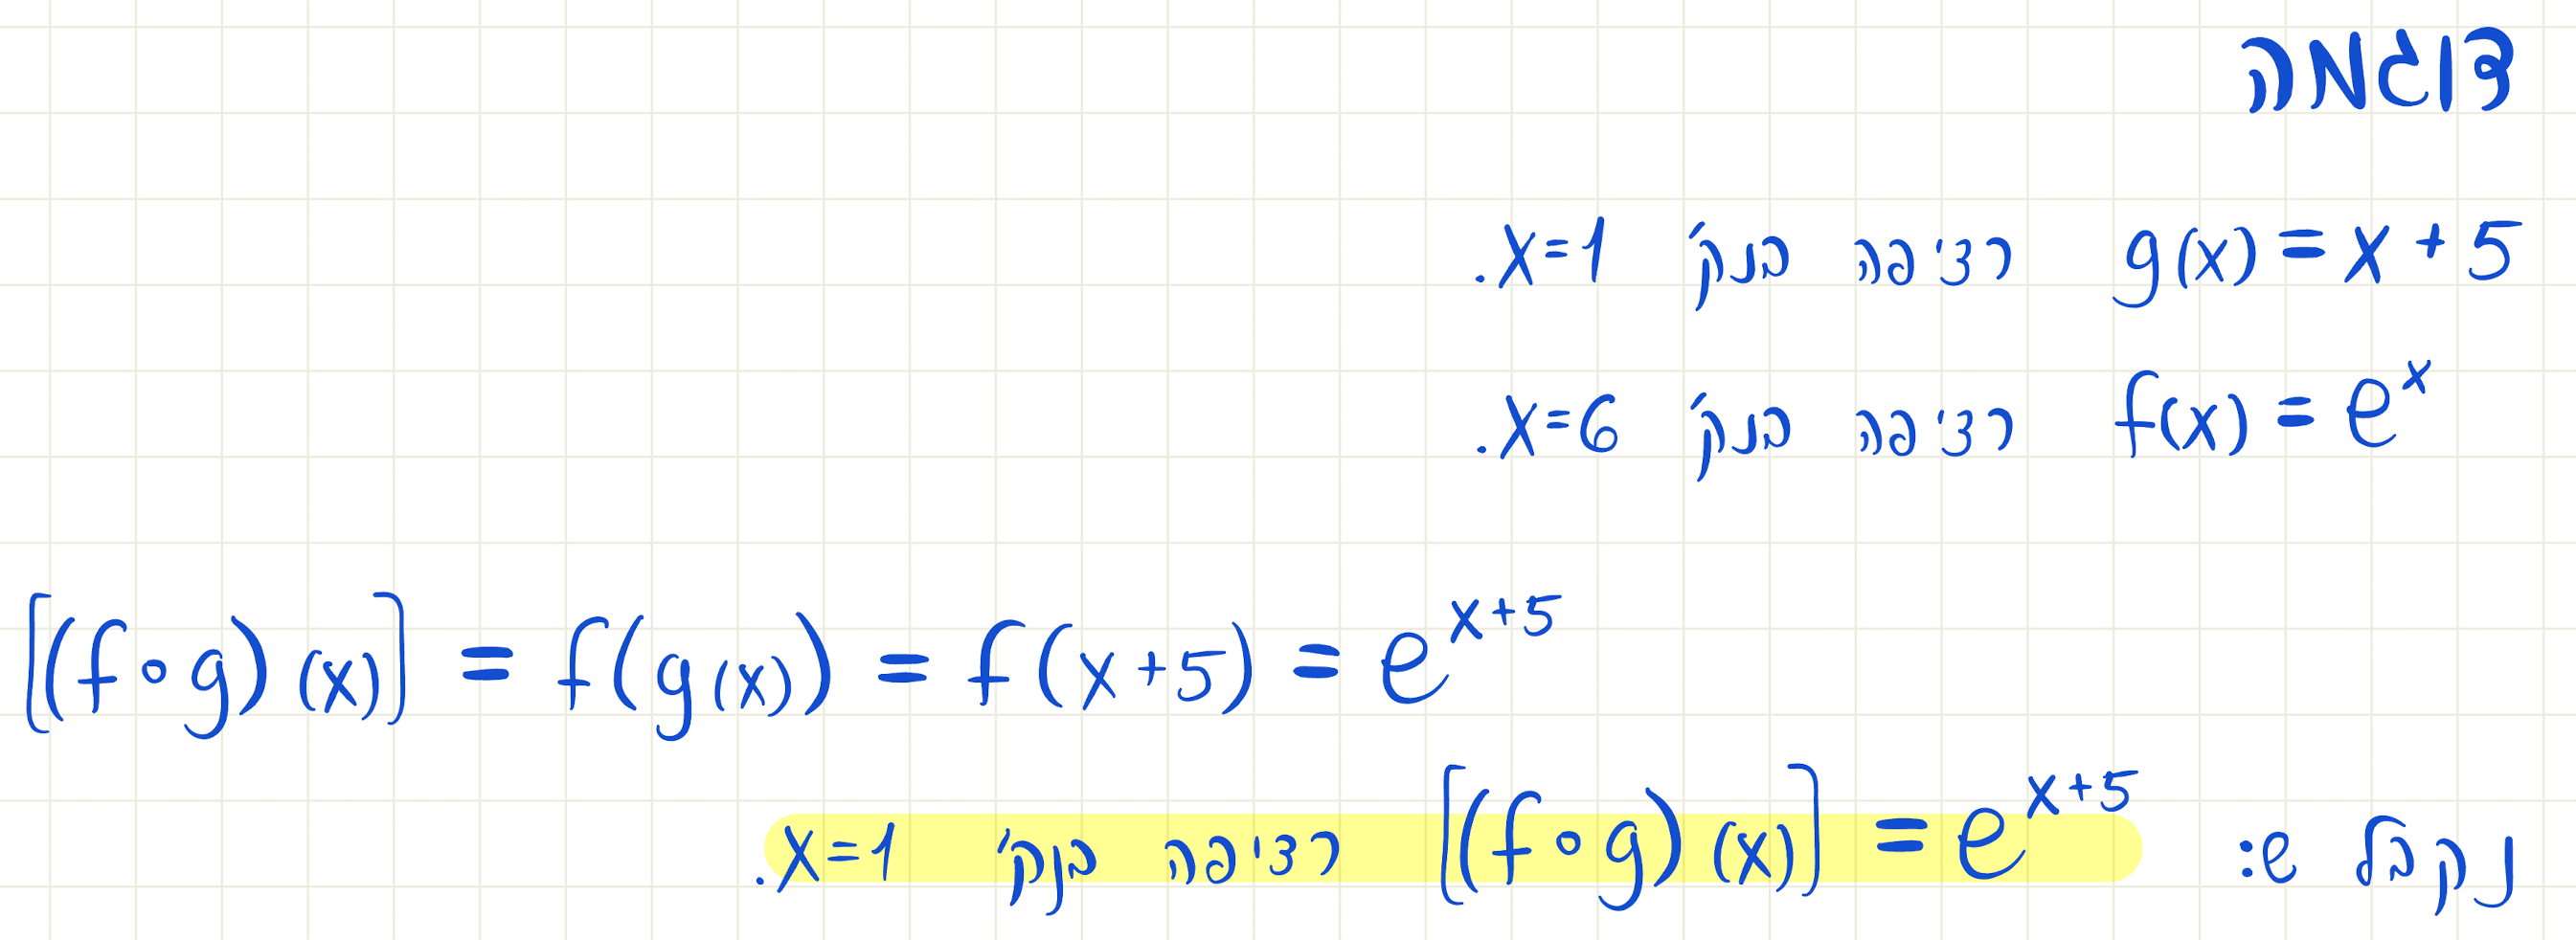 דוגמה
g(x) = x + 5 רציפה בנק' x=1.
f(x) = e^x רציפה בנק' x=6.
[(f∘g)(x)] = f(g(x)) = f(x+5) = e^{x+5}
נקבל ש: [(f∘g)(x)] = e^{x+5} רציפה בנק' x=1.